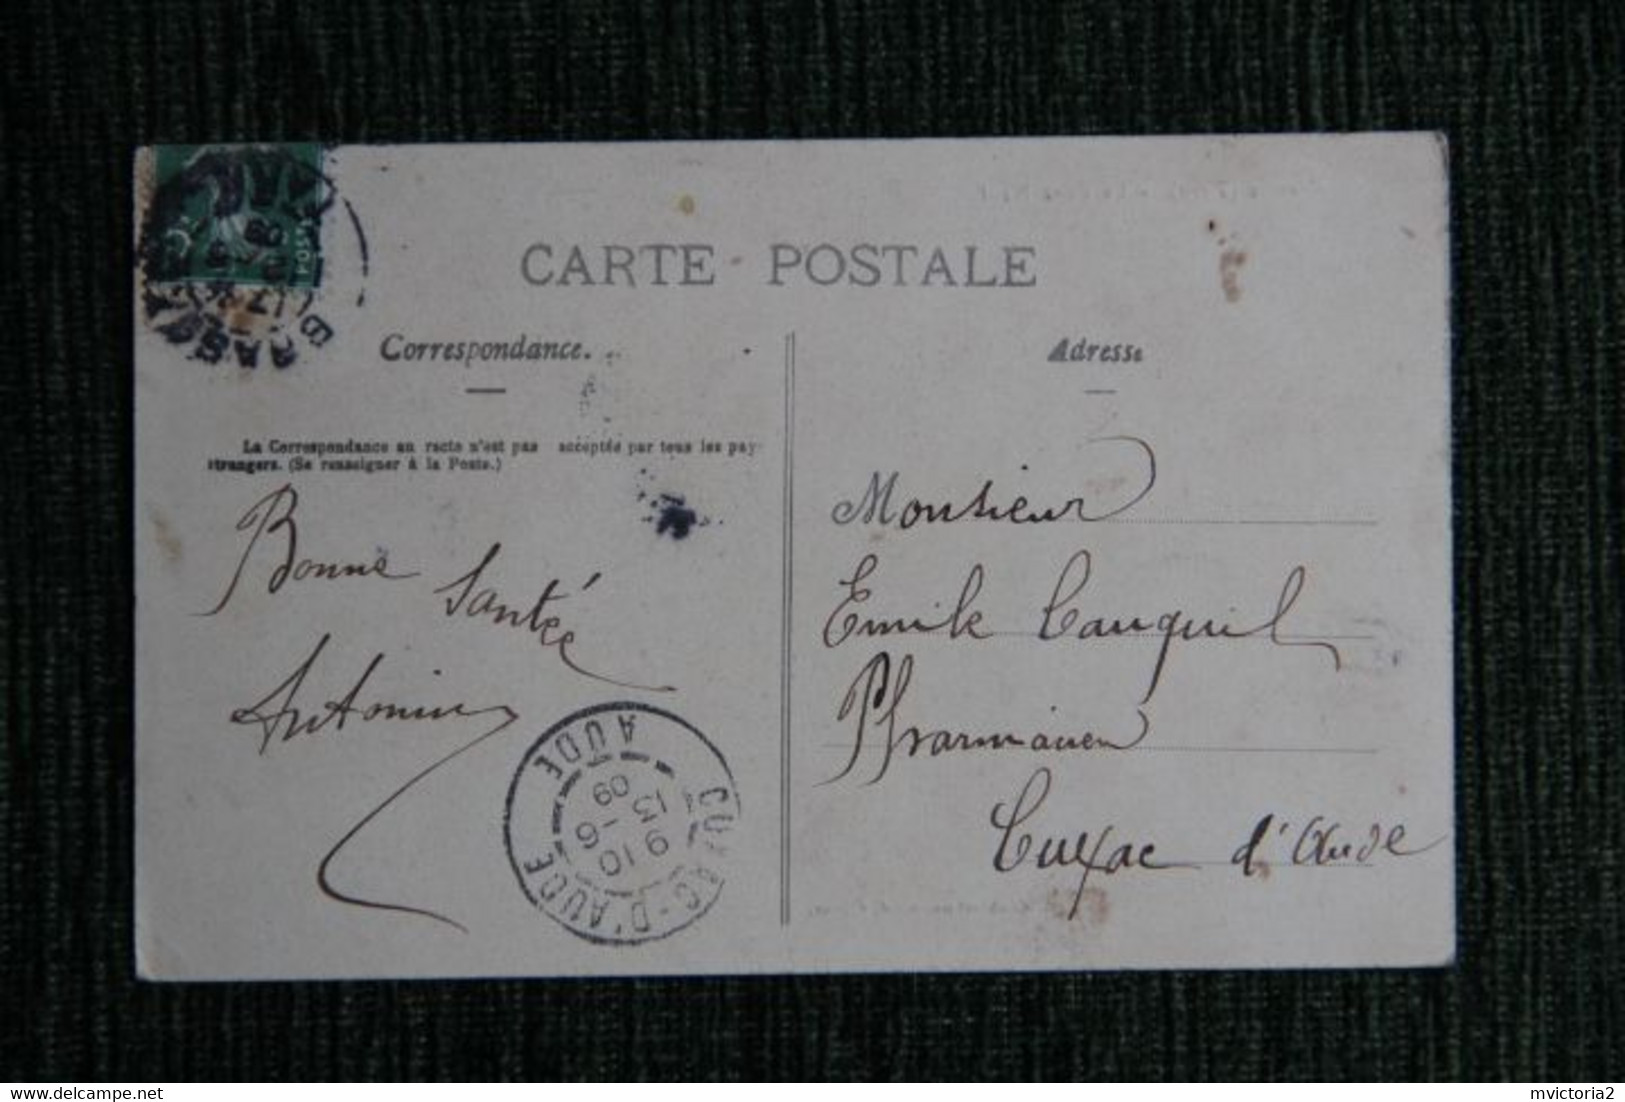 CARTE POSTALE
Correspondance.
La Correspondance au recto n'est pas acceptée par tous les pay
trangers. (Se renseigner à la Poste.)
Bonne
Santée
Antonin
CUXAC-D'AUDE
9 10
13 -6
09
AUDE
Adresse
Monsieur
Emile Cauquil
Pharmacien
Cuxac d'Aude
www.delcampe.net
mvictoria2